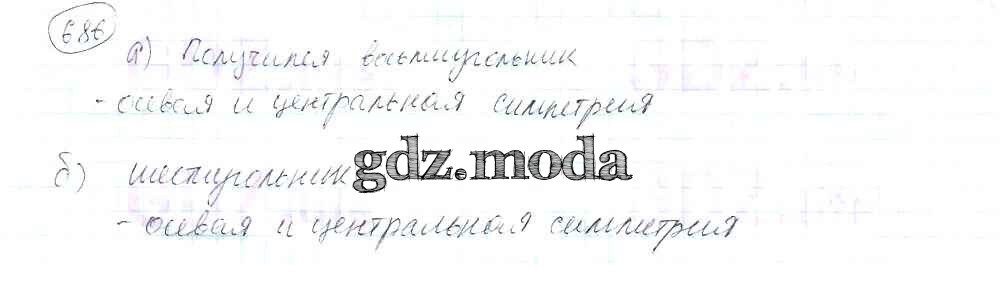 686
а) Получился восьмиугольник
- осевая и центральная симметрия
б) шестиугольник
gdz.moda
- осевая и центральная симметрия